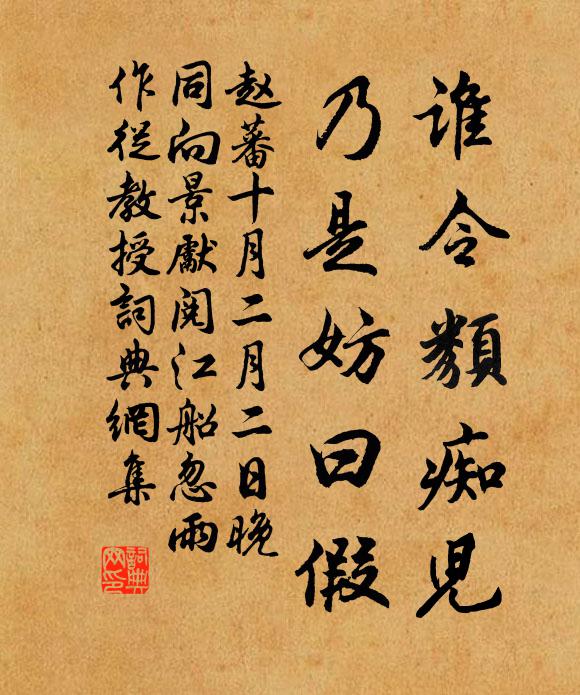 谁令類痴児
乃是妨曰假
赵蕃十月二月二日晚
同向景獻阅江船忽雨
作從教授詞典網集
詞典
网印